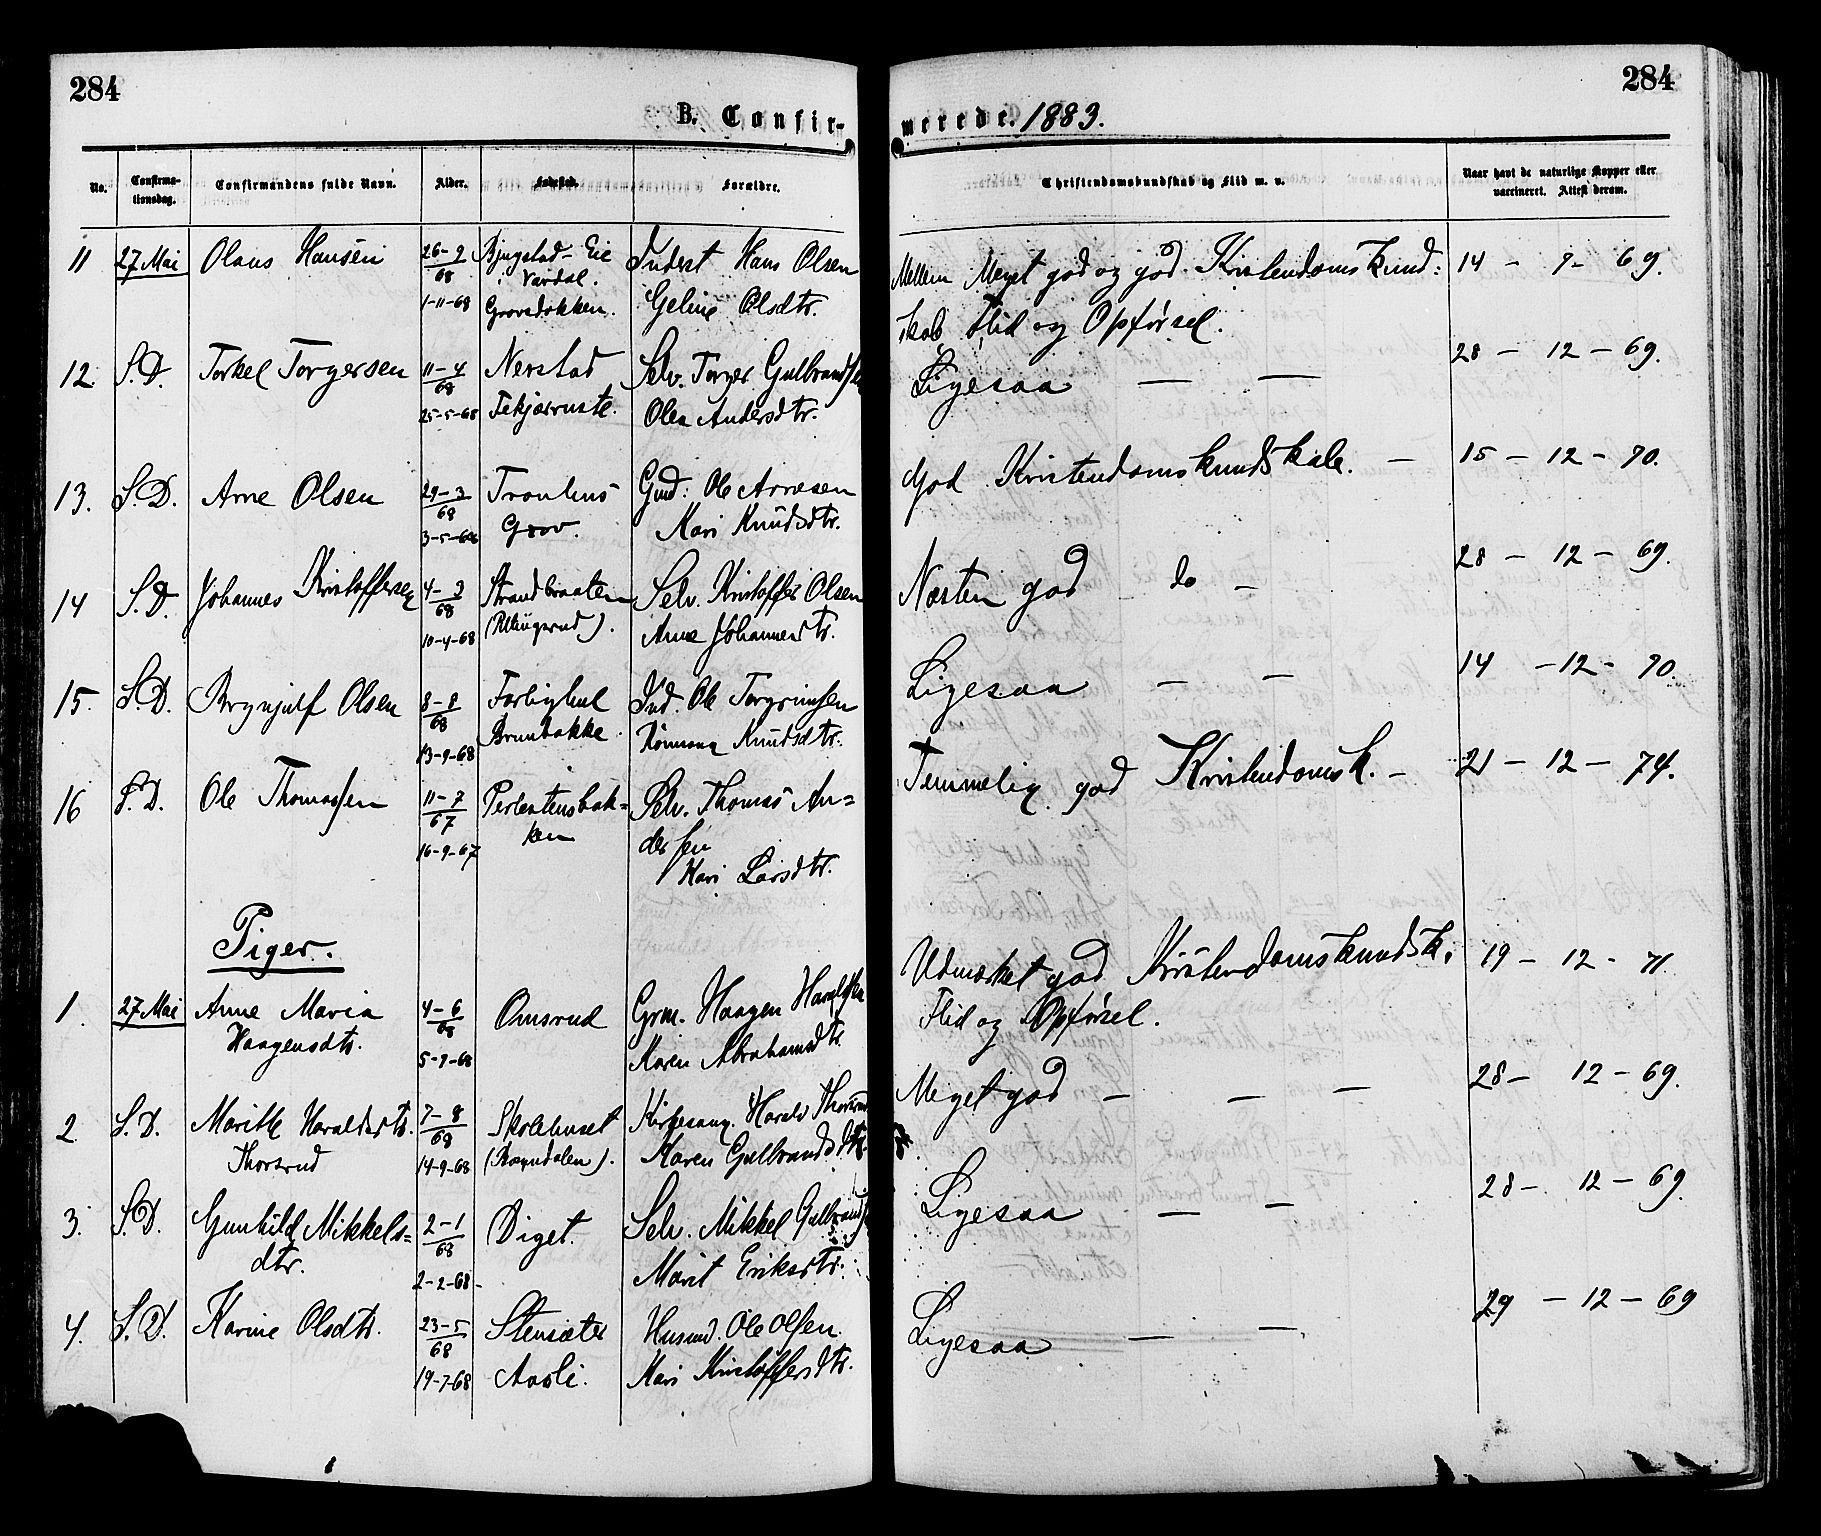 284
284
B. Confir-
merede. 1883.
No.
Confirma-
tionsdag.
Confirmandens fulde Navn.
Alder.
Fødested.
Forældre.
Christendomskundskab og Flid m. v.
Naar havt de naturlige Kopper eller
vaccineret. Attest derom.
11 27 Mai Olaus Hansen 26-9 Eie Inderst Hans Olsen
68 Vardal.
1-11-68 Geline Olsdtr.
Mellem Meget god og god Kristendomskund: 14 - 9 - 69.
skab, Flid og Opførsel.
12 S.D. Torkel Torgersen 11-4 Nerstad Selv. Torger Gulbrandsen
68
25-5-68 Olea Andersdtr.
Ligesaa — — 28 - 12 - 69.
13. S.D. Arne Olsen 29-3 Gmd: Ole Arnesen
68
3-5-68 Grov. Mari Knudsdtr.
God Kristendomskundskab. — 15 - 12 - 70.
14 S.D. Johannes Kristoffersen 4-3 Strandbraaten Selv. Kristoffer Olsen
68
10-4-68 Anne Johannesdtr.
Næsten god do - 28 - 12 - 69.
15. S.D. Brynjulf Olsen 8-8 Ind. Ole Torgrimsen
68
13-9-68 Brunbakke Rønnaug Knudsdtr.
Ligesaa — — 14 - 12 - 70.
16 S.D. Ole Thomassen 11-7 Selv. Thomas An=
67 ken dersen
16-9-67 Kari Larsdtr.
Temmelig god Kristendomsk. - 21 - 12 - 74.
Piger.
1. 27 Mai Anne Maria 4-6 Omsrud Grm. Haagen Haraldsen
68 Haagensdtr.
5-7-68 Karen Abrahamsdtr.
Udmærket god Kristendomskundsk: 19 - 12 - 71
Flid og Opførsel.
2. S.D. Marithe Haraldsdtr. 7-8 Skolehuset Kirkesang. Harald Thorsrud
68
Thorsrud 14-9-68 Karen Gulbrandsdtr.
Meget god — — — 28 - 12 - 69.
3. S.D. Gunhild Mikkels= 2-1 Diget. Selv. Mikkel Gulbrandsen
dtr. 68
2-2-68 Marit Eriksdtr.
Ligesaa — — 28 - 12 - 69.
4. S.D. Karine Olsdtr. 23-5 Stensæter Husmd. Ole Olsen
68
19-7-68 Aasli. Kari Kristoffersdtr.
Ligesaa — — 29 - 12 - 69